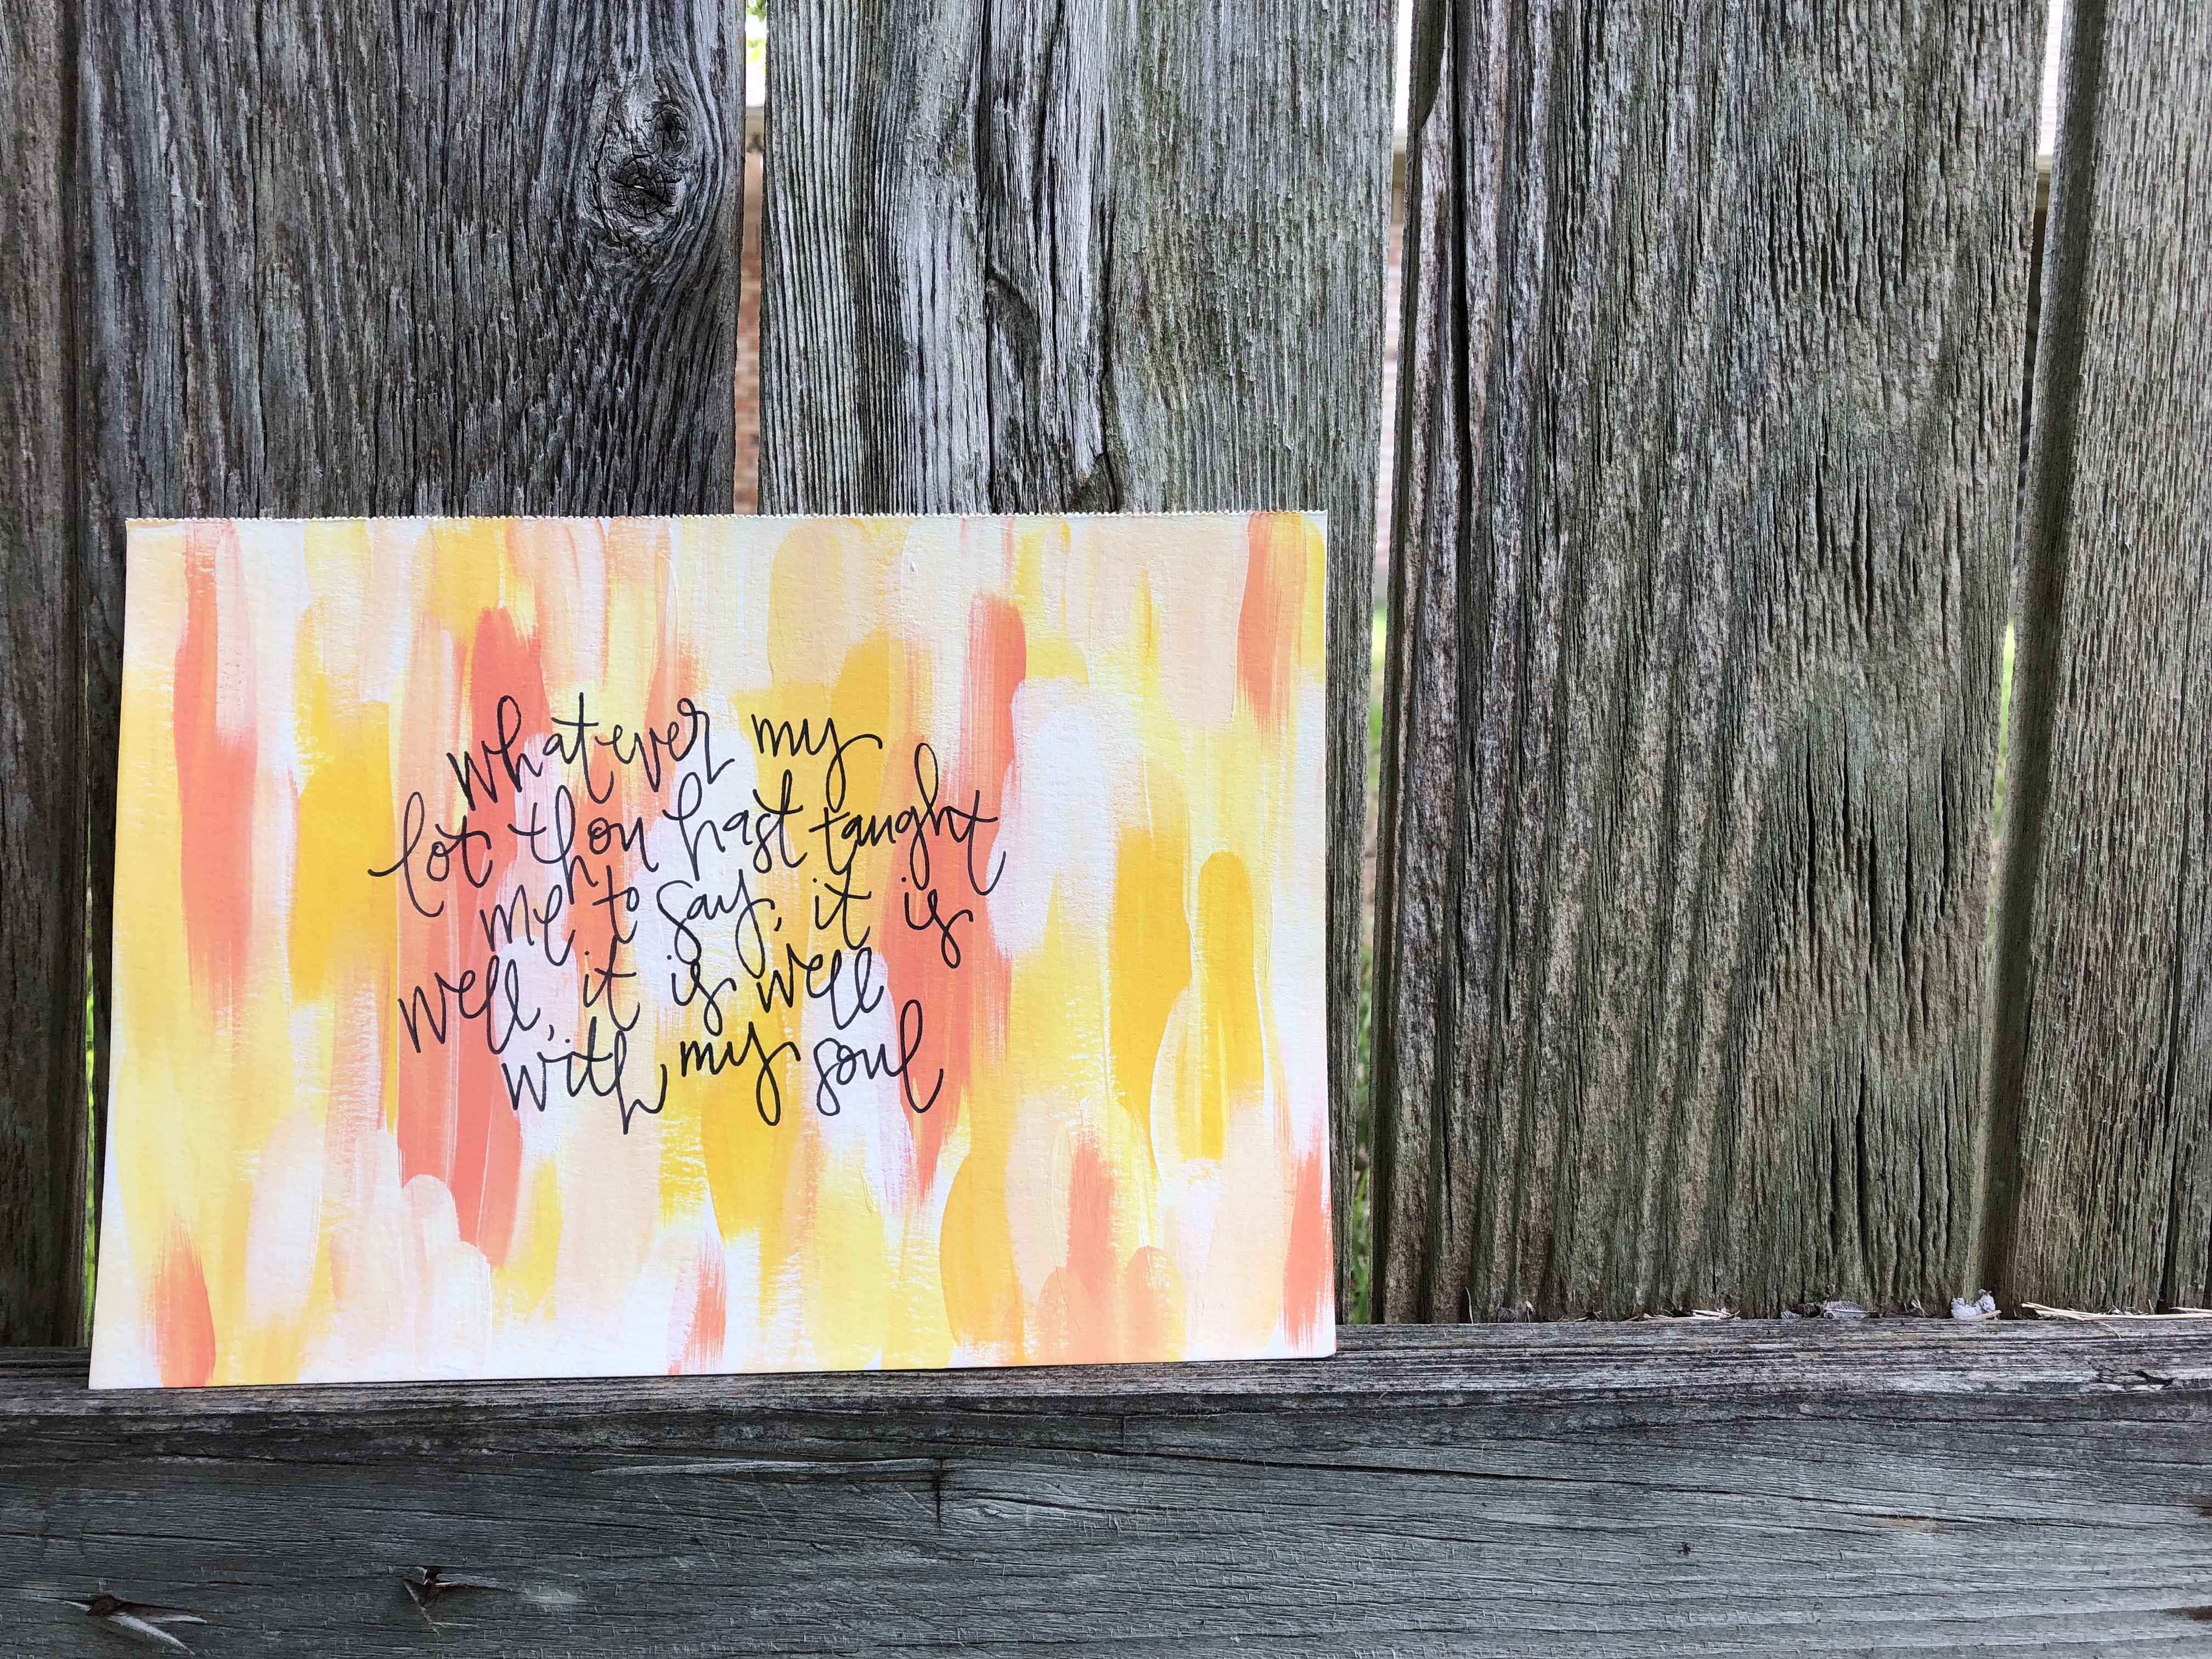 whatever my
lot thou hast taught
me to say, it is
well, it is well
with my soul